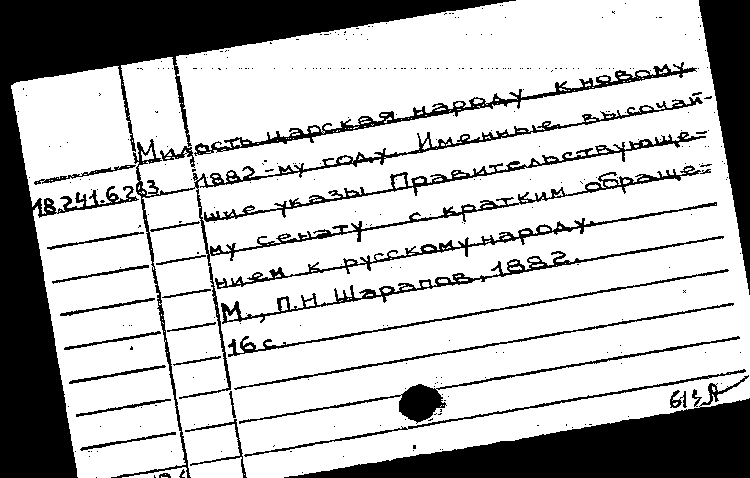 Милость царская народу к новому
18.241.6.263. 1882-му году. Именные высочай-
шие указы Правительствующе-
му сенату с кратким обраще-
нием к русскому народу.
М., П.Н. Шарапов, 1882.
16 с.